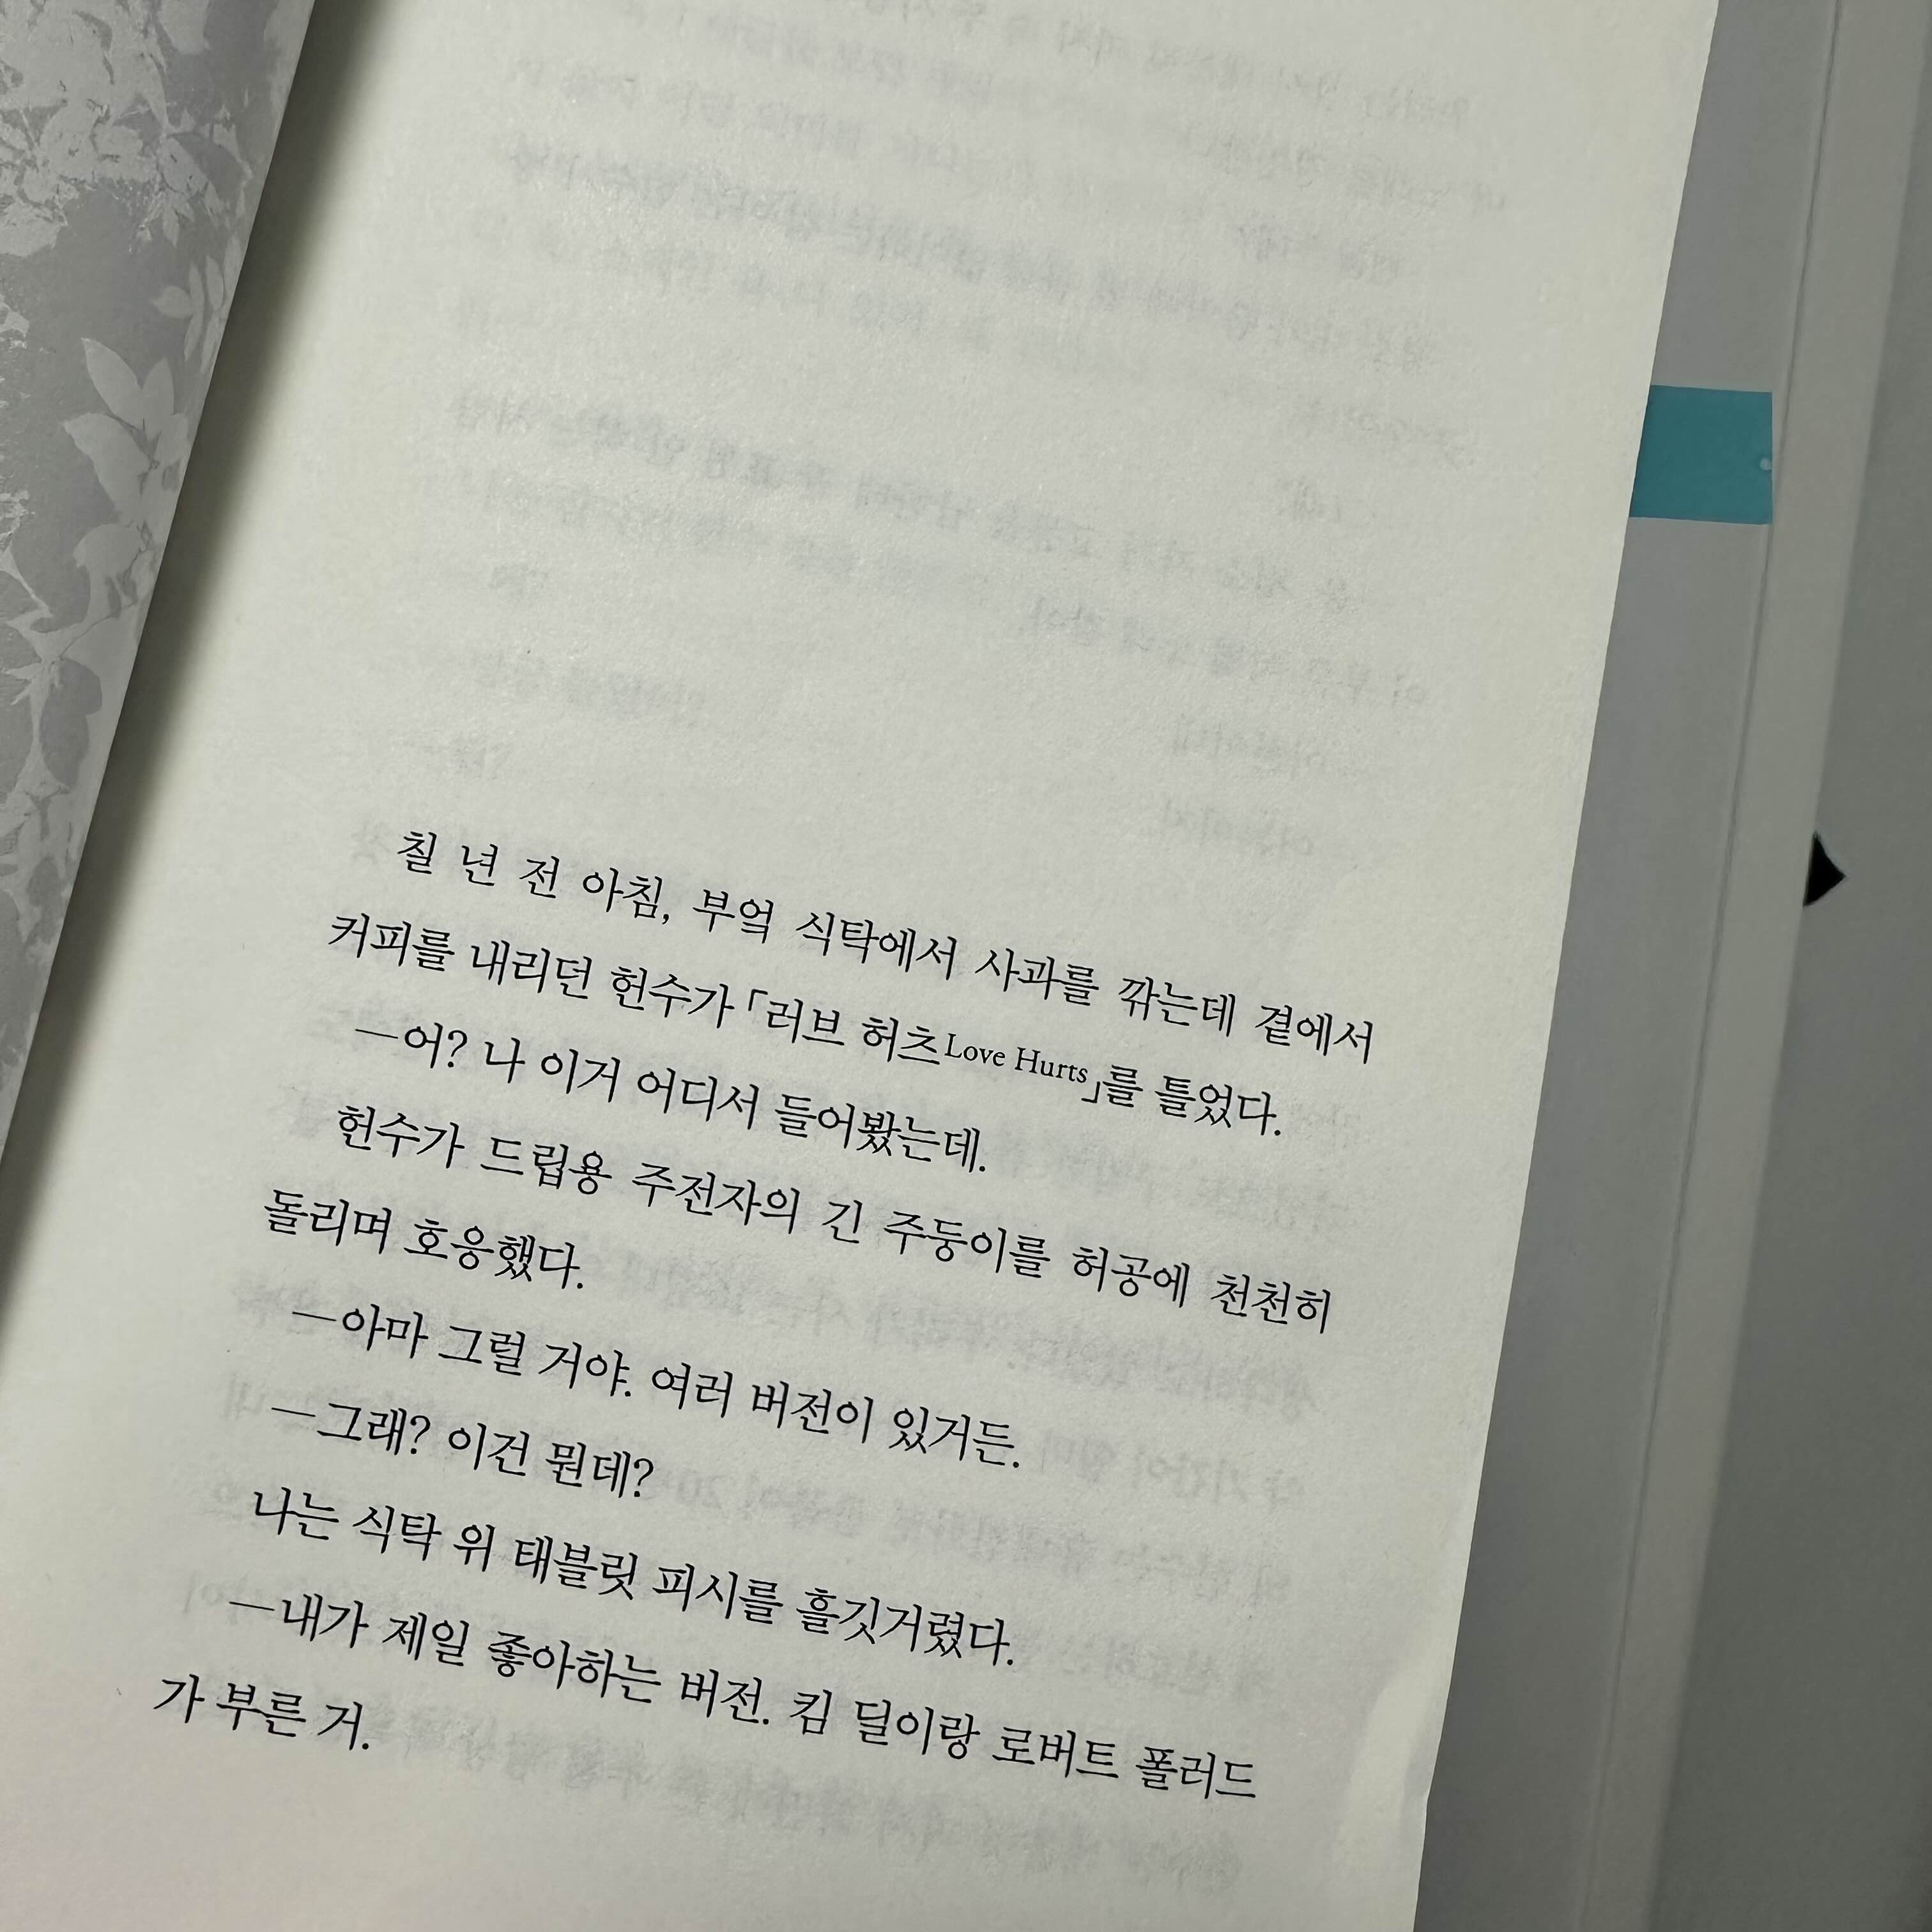 칠 년 전 아침, 부엌 식탁에서 사과를 깎는데 곁에서
커피를 내리던 헌수가 「러브 허츠Love Hurts」를 틀었다.
—어? 나 이거 어디서 들어봤는데.
헌수가 드립용 주전자의 긴 주둥이를 허공에 천천히
돌리며 호응했다.
—아마 그럴 거야. 여러 버전이 있거든.
—그래? 이건 뭔데?
나는 식탁 위 태블릿 피시를 흘깃거렸다.
—내가 제일 좋아하는 버전. 킴 딜이랑 로버트 폴러드
가 부른 거.